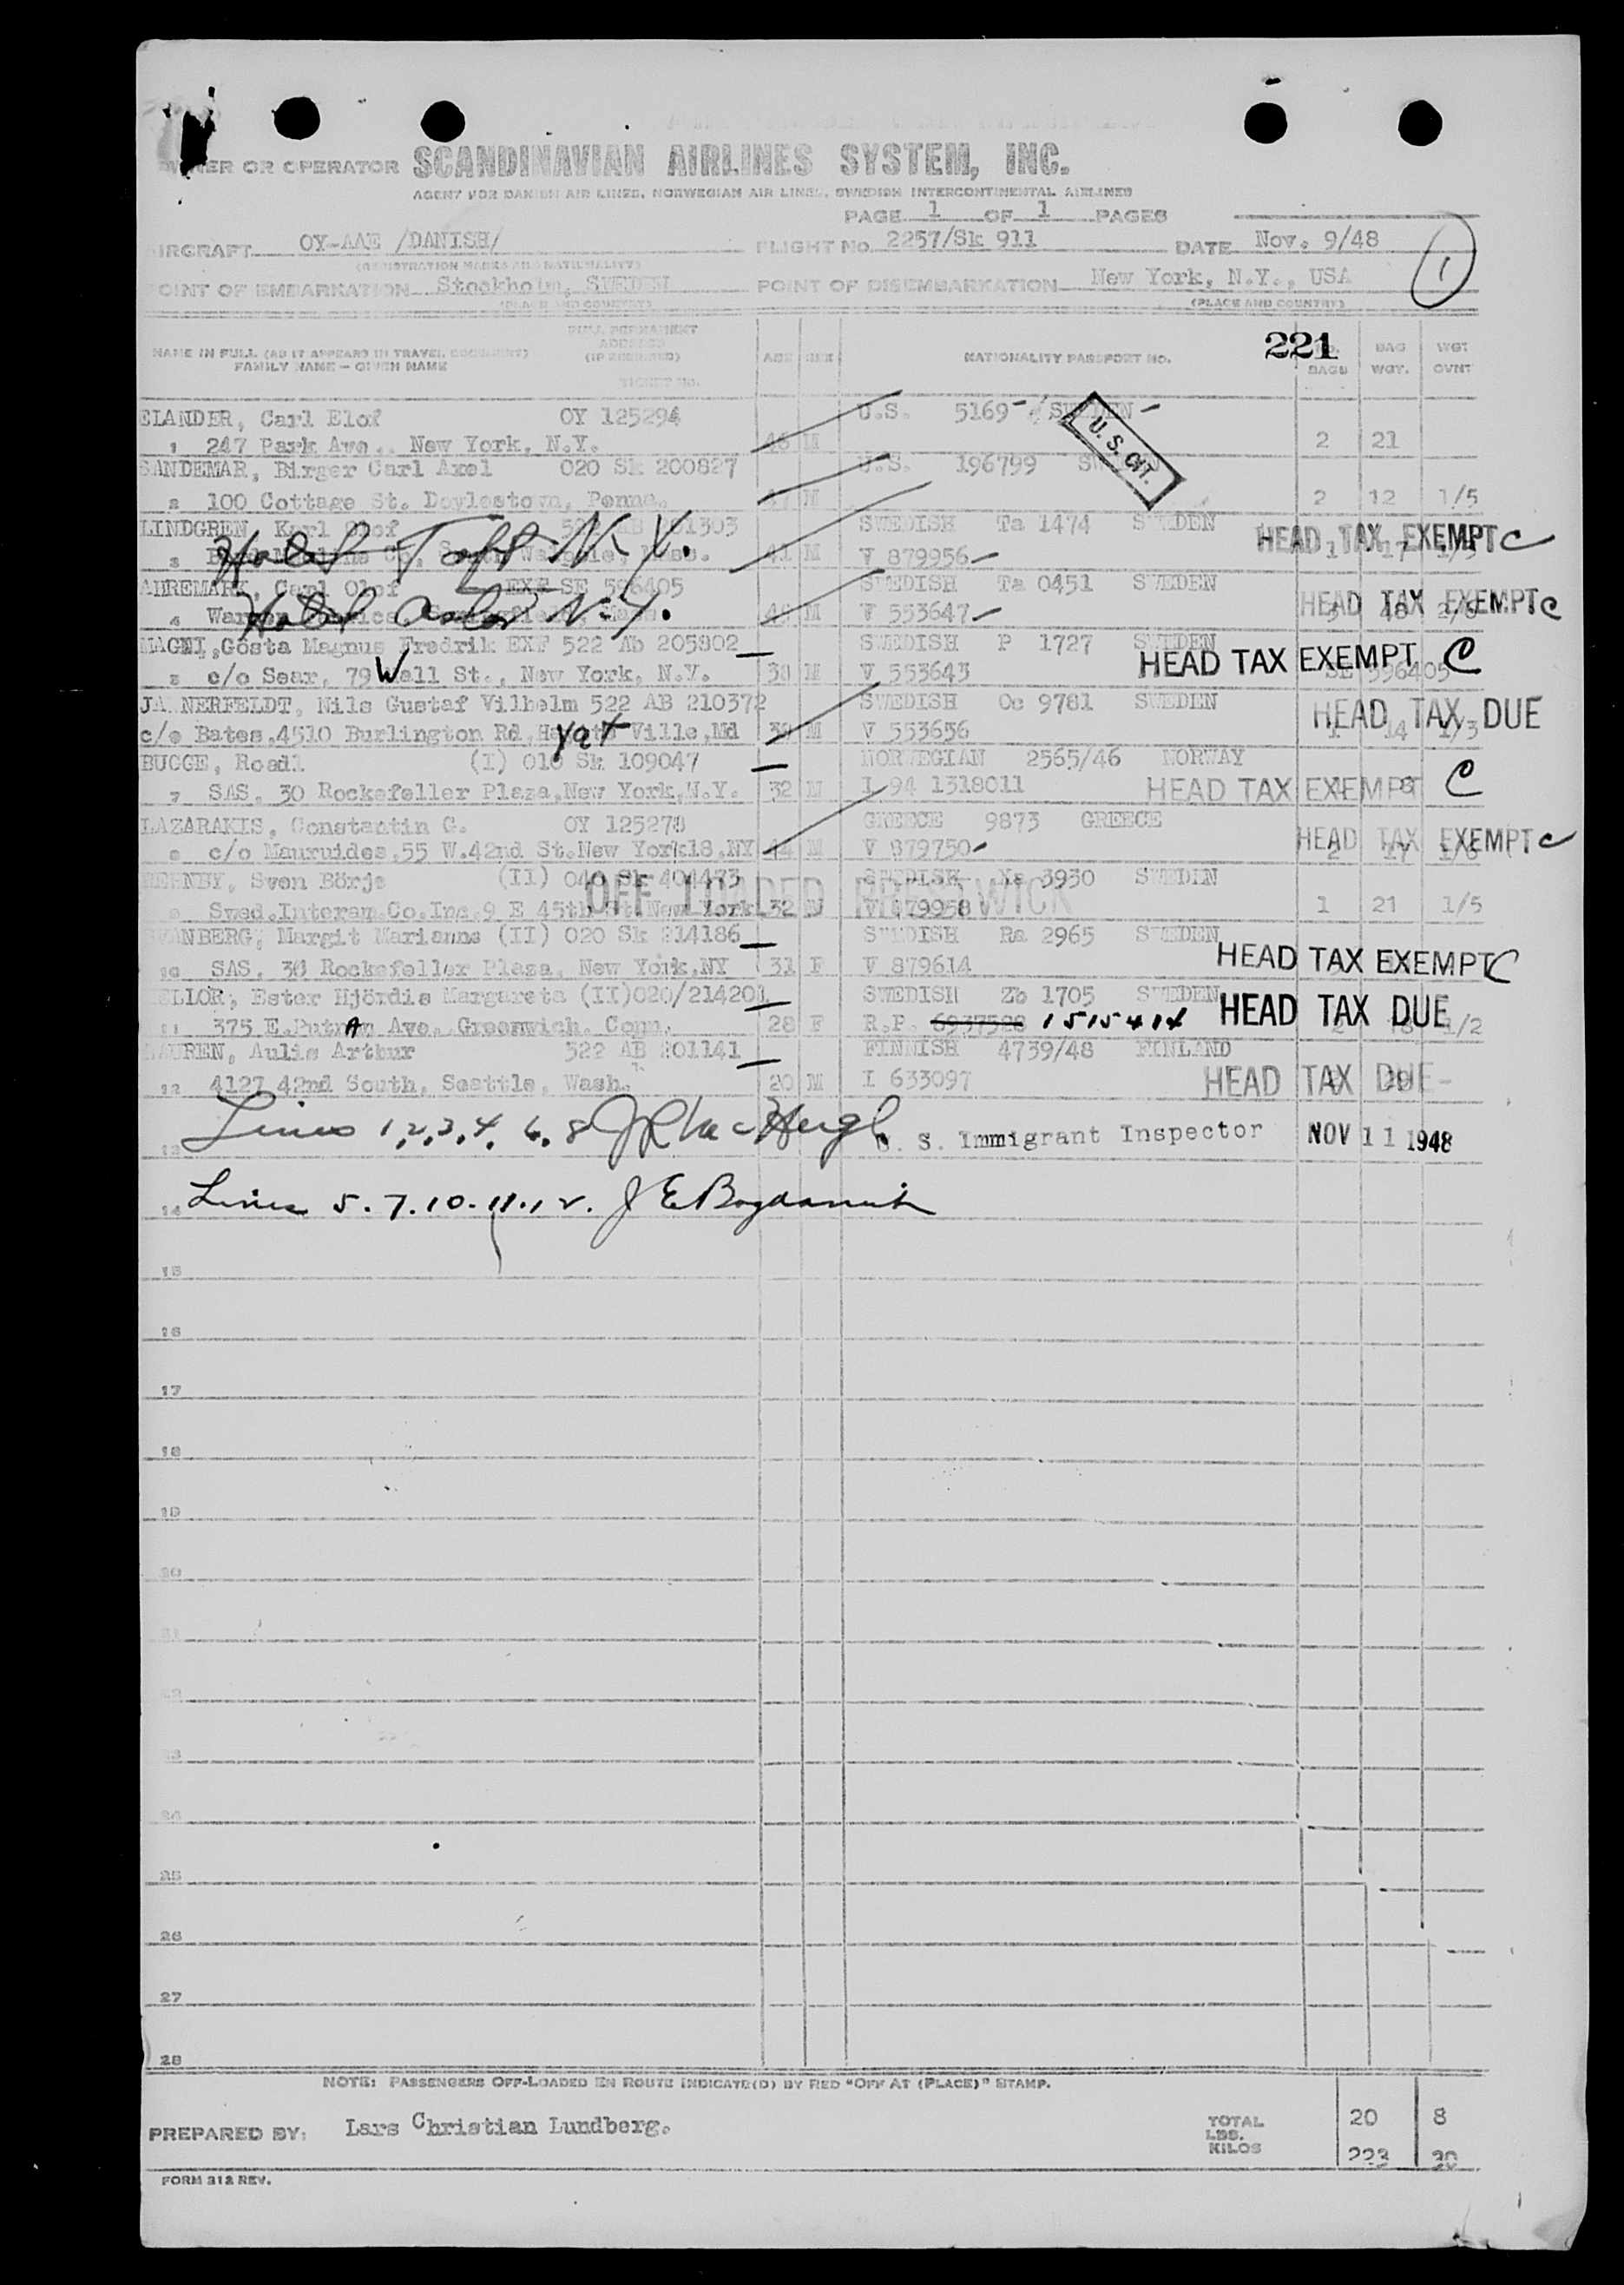 OWNER OR OPERATOR SCANDINAVIAN AIRLINES SYSTEM, INC.
AGENT FOR DANISH AIR LINES, NORWEGIAN AIR LINES, SWEDISH INTERCONTINENTAL AIRLINES
PAGE 1 OF 1 PAGES
AIRCRAFT OY-AAE /DANISH/ FLIGHT No. 2257/Sk 911 DATE Nov. 9/48 1
(REGISTRATION MARKS AND NATIONALITY)
POINT OF EMBARKATION Stockholm, SWEDEN POINT OF DISEMBARKATION New York, N.Y., USA
(PLACE AND COUNTRY) (PLACE AND COUNTRY)
221
NAME IN FULL (AS IT APPEARS IN TRAVEL DOCUMENT) FULL PERMANENT ADDRESS (IF REQUIRED) AGE SEX NATIONALITY PASSPORT NO. NO. BAGS BAG WGT. WGT OVNT
FAMILY NAME - GIVEN NAME TICKET NO.
ELANDER, Carl Elof OY 125294 U.S. 5169 SWEDEN
1 247 Park Ave., New York, N.Y. 46 M 2 21
U. S. CIT.
SANDEMAR, Birger Carl Axel 020 Sk 200827 U.S. 196799
2 100 Cottage St. Doylestown, Penna. 47 M 2 12 1/5
LINDGREN Karl Olof SWEDISH Ta 1474 SWEDEN
Hotel Taft N.Y. HEAD TAX EXEMPT C
3 41 M V 879956
AHREMARK, Carl Olof EXF SE 596405 SWEDISH Ta 0451 SWEDEN
Hotel Astor N.Y. HEAD TAX EXEMPT C
4 M V 553647
MAGNI, Gösta Magnus Fredrik EXF 522 Ab 205802 SWEDISH P 1727 SWEDEN
5 c/o Sear, 79 Wall St., New York, N.Y. 38 M V 553643 HEAD TAX EXEMPT C
SE 596405
JA NERFELDT, Nils Gustaf Vilhelm 522 AB 210372 SWEDISH Oc 9781 SWEDEN
c/o Bates,4510 Burlington Rd, yat Ville,Md M V 553656 HEAD TAX DUE 1 14 1/3
BUGGE, Roadl (I) 010 Sk 109047 NORWEGIAN 2565/46 NORWAY
7 SAS, 30 Rockefeller Plaza,New York,N.Y. 32 M I 94 1318011 HEAD TAX EXEMPT C
LAZARAKIS, Constantin G. OY 125278 GREECE 9873 GREECE
8 c/o Mauruides,55 W.42nd St.New York18,NY 44 M V 879750 HEAD TAX EXEMPT C
Sven Börje (II) 040 Sk 404473 SWEDISH Xa 3930 SWEDEN
OFF LOADED PRESTWICK
9 Swed.Interam.Co.Inc,9 E 45th St New York 32 M V 879958 1 21 1/5
Margit Marianne (II) 020 Sk 214186 SWEDISH Ra 2965 SWEDEN
10 SAS, 30 Rockefeller Plaza, New York,NY 31 F V 879614 HEAD TAX EXEMPT C
Ester Hjördis Margareta (II)020/214201 SWEDISH Zb 1705 SWEDEN
11 375 E.Putnam Ave. Greenwich. Conn. 28 F R.P. 6937528 1515414 HEAD TAX DUE 1/2
LAUREN, Aulis Arthur 522 AB 201141 FINNISH 4739/48 FINLAND
12 4127 42nd South, Seattle, Wash. 20 M I 633097 HEAD TAX DUE
13 Lines 1,2,3,4, 6, 8 U. S. Immigrant Inspector NOV 11 1948
14 Lines 5.7.10.11.12.
15
16
17
18
19
20
21
22
23
24
25
26
27
28
NOTE: PASSENGERS OFF-LOADED EN ROUTE INDICATE(D) BY RED "OFF AT (PLACE)" STAMP.
PREPARED BY: Lars Christian Lundberg. TOTAL 20 8
LBS.
KILOS 223 30
FORM 312 REV.